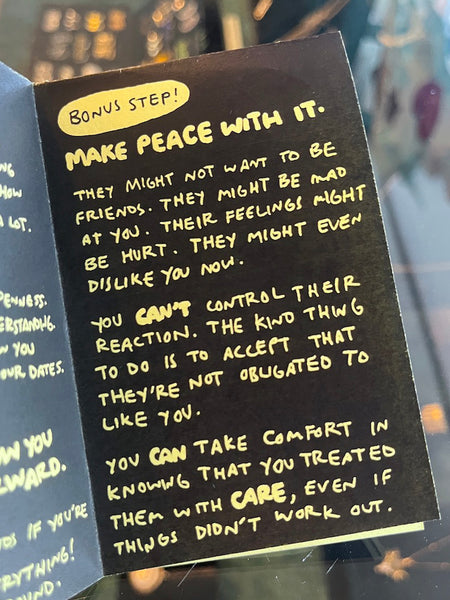 NG
HOW
LOT.
PENNESS.
ERSTANDING.
YOU
OUR DATES.
AN YOU
WARD.
IF YOU'RE
ERYTHING!
OUND.
BONUS STEP!
MAKE PEACE WITH IT.
THEY MIGHT NOT WANT TO BE
FRIENDS. THEY MIGHT BE MAD
AT YOU. THEIR FEELINGS MIGHT
BE HURT. THEY MIGHT EVEN
DISLIKE YOU NOW.
YOU CAN'T CONTROL THEIR
REACTION. THE KIND THING
TO DO IS TO ACCEPT THAT
THEY'RE NOT OBLIGATED TO
LIKE YOU.
YOU CAN TAKE COMFORT IN
KNOWING THAT YOU TREATED
THEM WITH CARE, EVEN IF
THINGS DIDN'T WORK OUT.